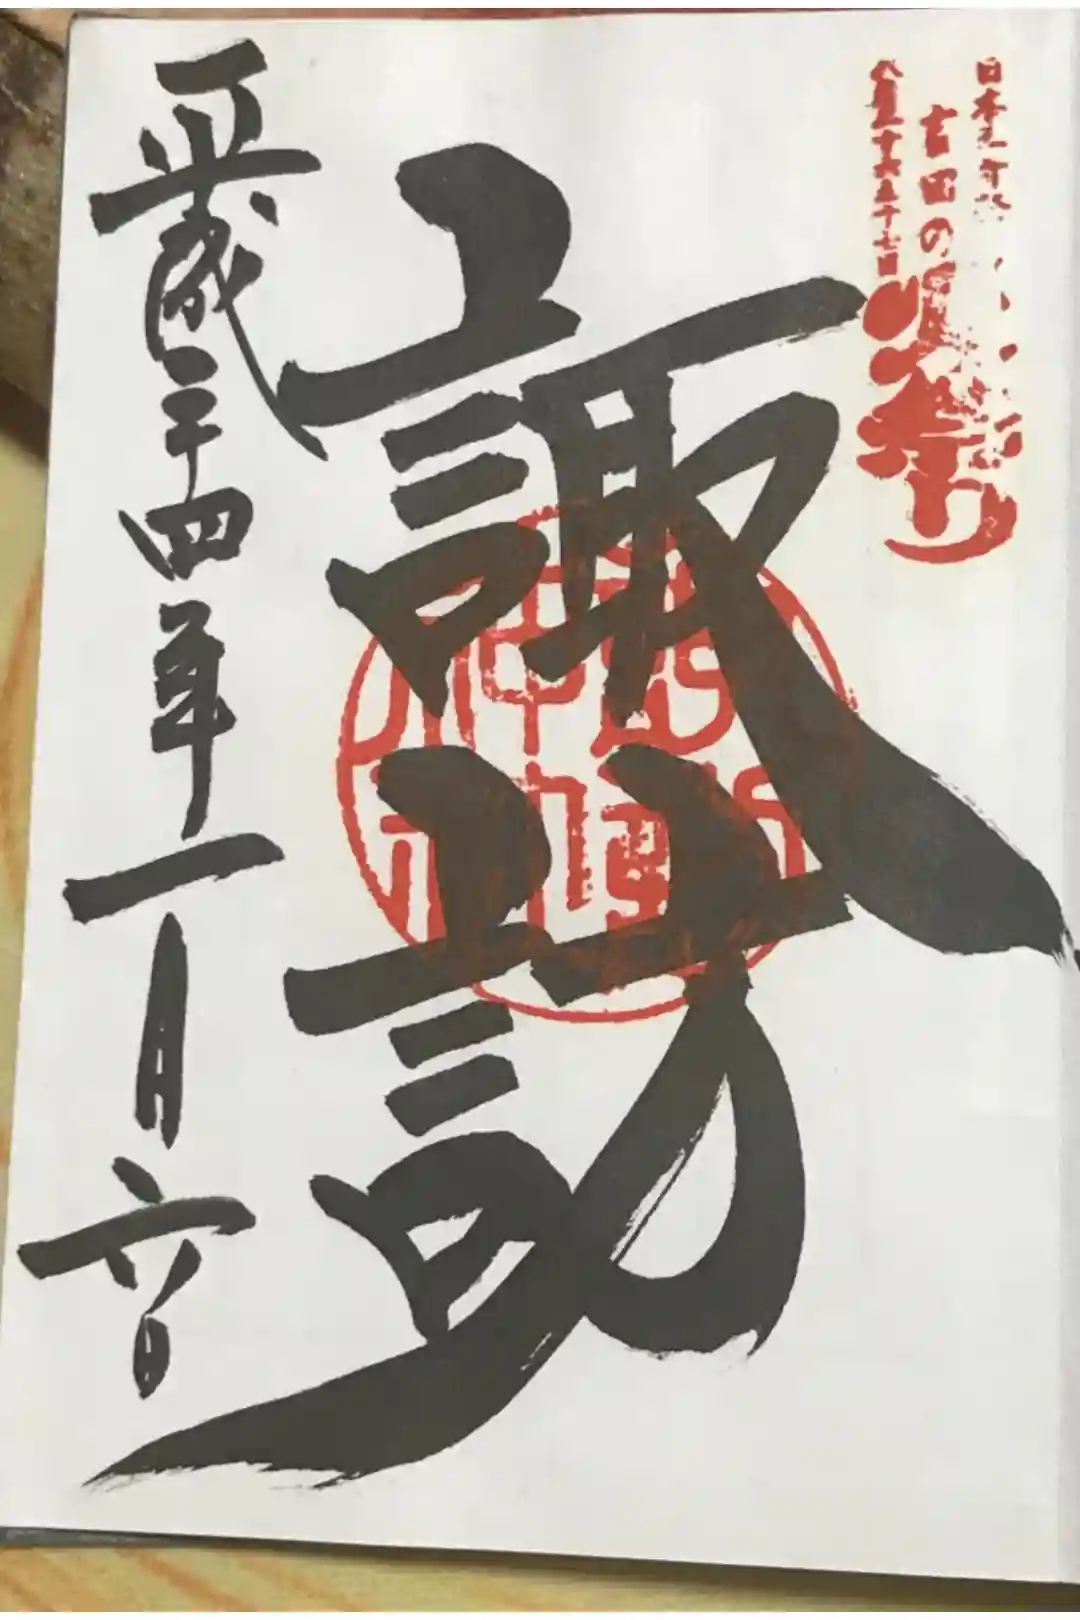 日本三奇祭
吉田の火祭り
諏訪
平成二十四年一月六日